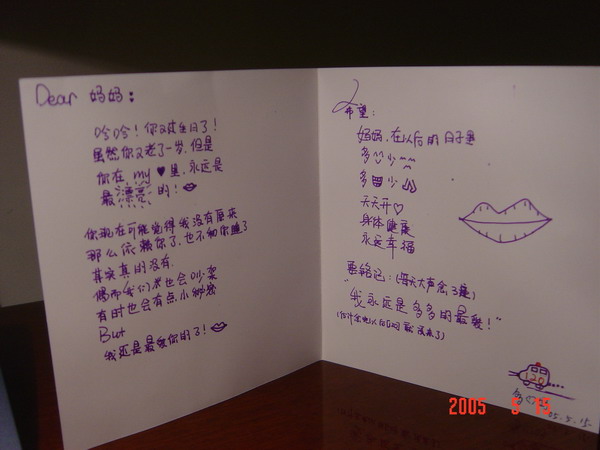 Dear 妈妈：
哈哈！你又过生日了！
虽然你又老了一岁，但是
你在 my ♥ 里，永远是
最漂亮的！
你现在可能觉得我没有原来
那么依赖你了，也不和你睡了
其实真的没有.
偶而我们俩也会吵架
有时也会有点小秘密
But
我还是最爱你的了！
希望：
妈妈，在以后的日子里
多 少
多 少
天天开♡
身体健康
永远幸福
要铭记：（每天大声念3遍）
"我永远是多多的最爱！"
120
05.5.15.
2005 5 15